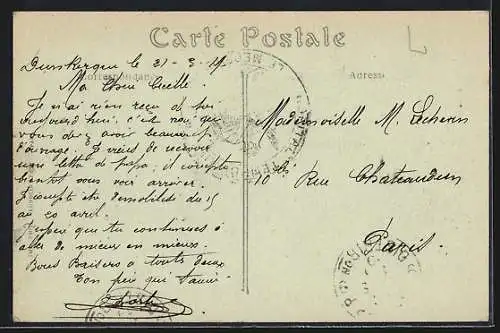 Carte Postale
Correspondance
Adresse
Dunkerque le 21-3-19
Ma Chère Cécile
Je n'ai rien reçu de toi
aujourd'hui, c'est que
vous devez avoir beaucoup
d'ouvrage. Je viens de recevoir
une lettre de papa, il compte
bientôt vous voir arriver.
Je compte être démobilisé du 15
au 20 avril.
J'espère que tu continues à
aller de mieux en mieux.
Bons Baisers à toutes deux
Ton qui t'aime
Mademoiselle M. Lecherin
10 Rue Chateaudun
Paris